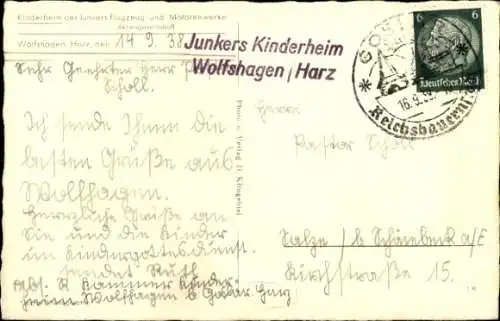 Kinderheim der Junkers Flugzeug und Motorenwerke
Aktiengesellschaft
Wolfshagen Harz, den 14.9.38
Sehr Geehrter Herr P
Scholl.
Ich sende Ihnen die
besten Grüße aus
Wolfhagen.
Herzliche Grüße an
Sie und die Kinder
im Kindergottesdienst.
sendet Ruth
Abs. R Kammer Kinder-
heim Wolfhagen b Goslar Harz
Junkers Kinderheim
Wolfshagen / Harz
Photo u. Verlag
Herrn
Pastor Scholl
Salze / b Schönebeck a/E
Kirchstraße 15.
6 6
Deutsches Reich
16.9.38
Reichsbauern